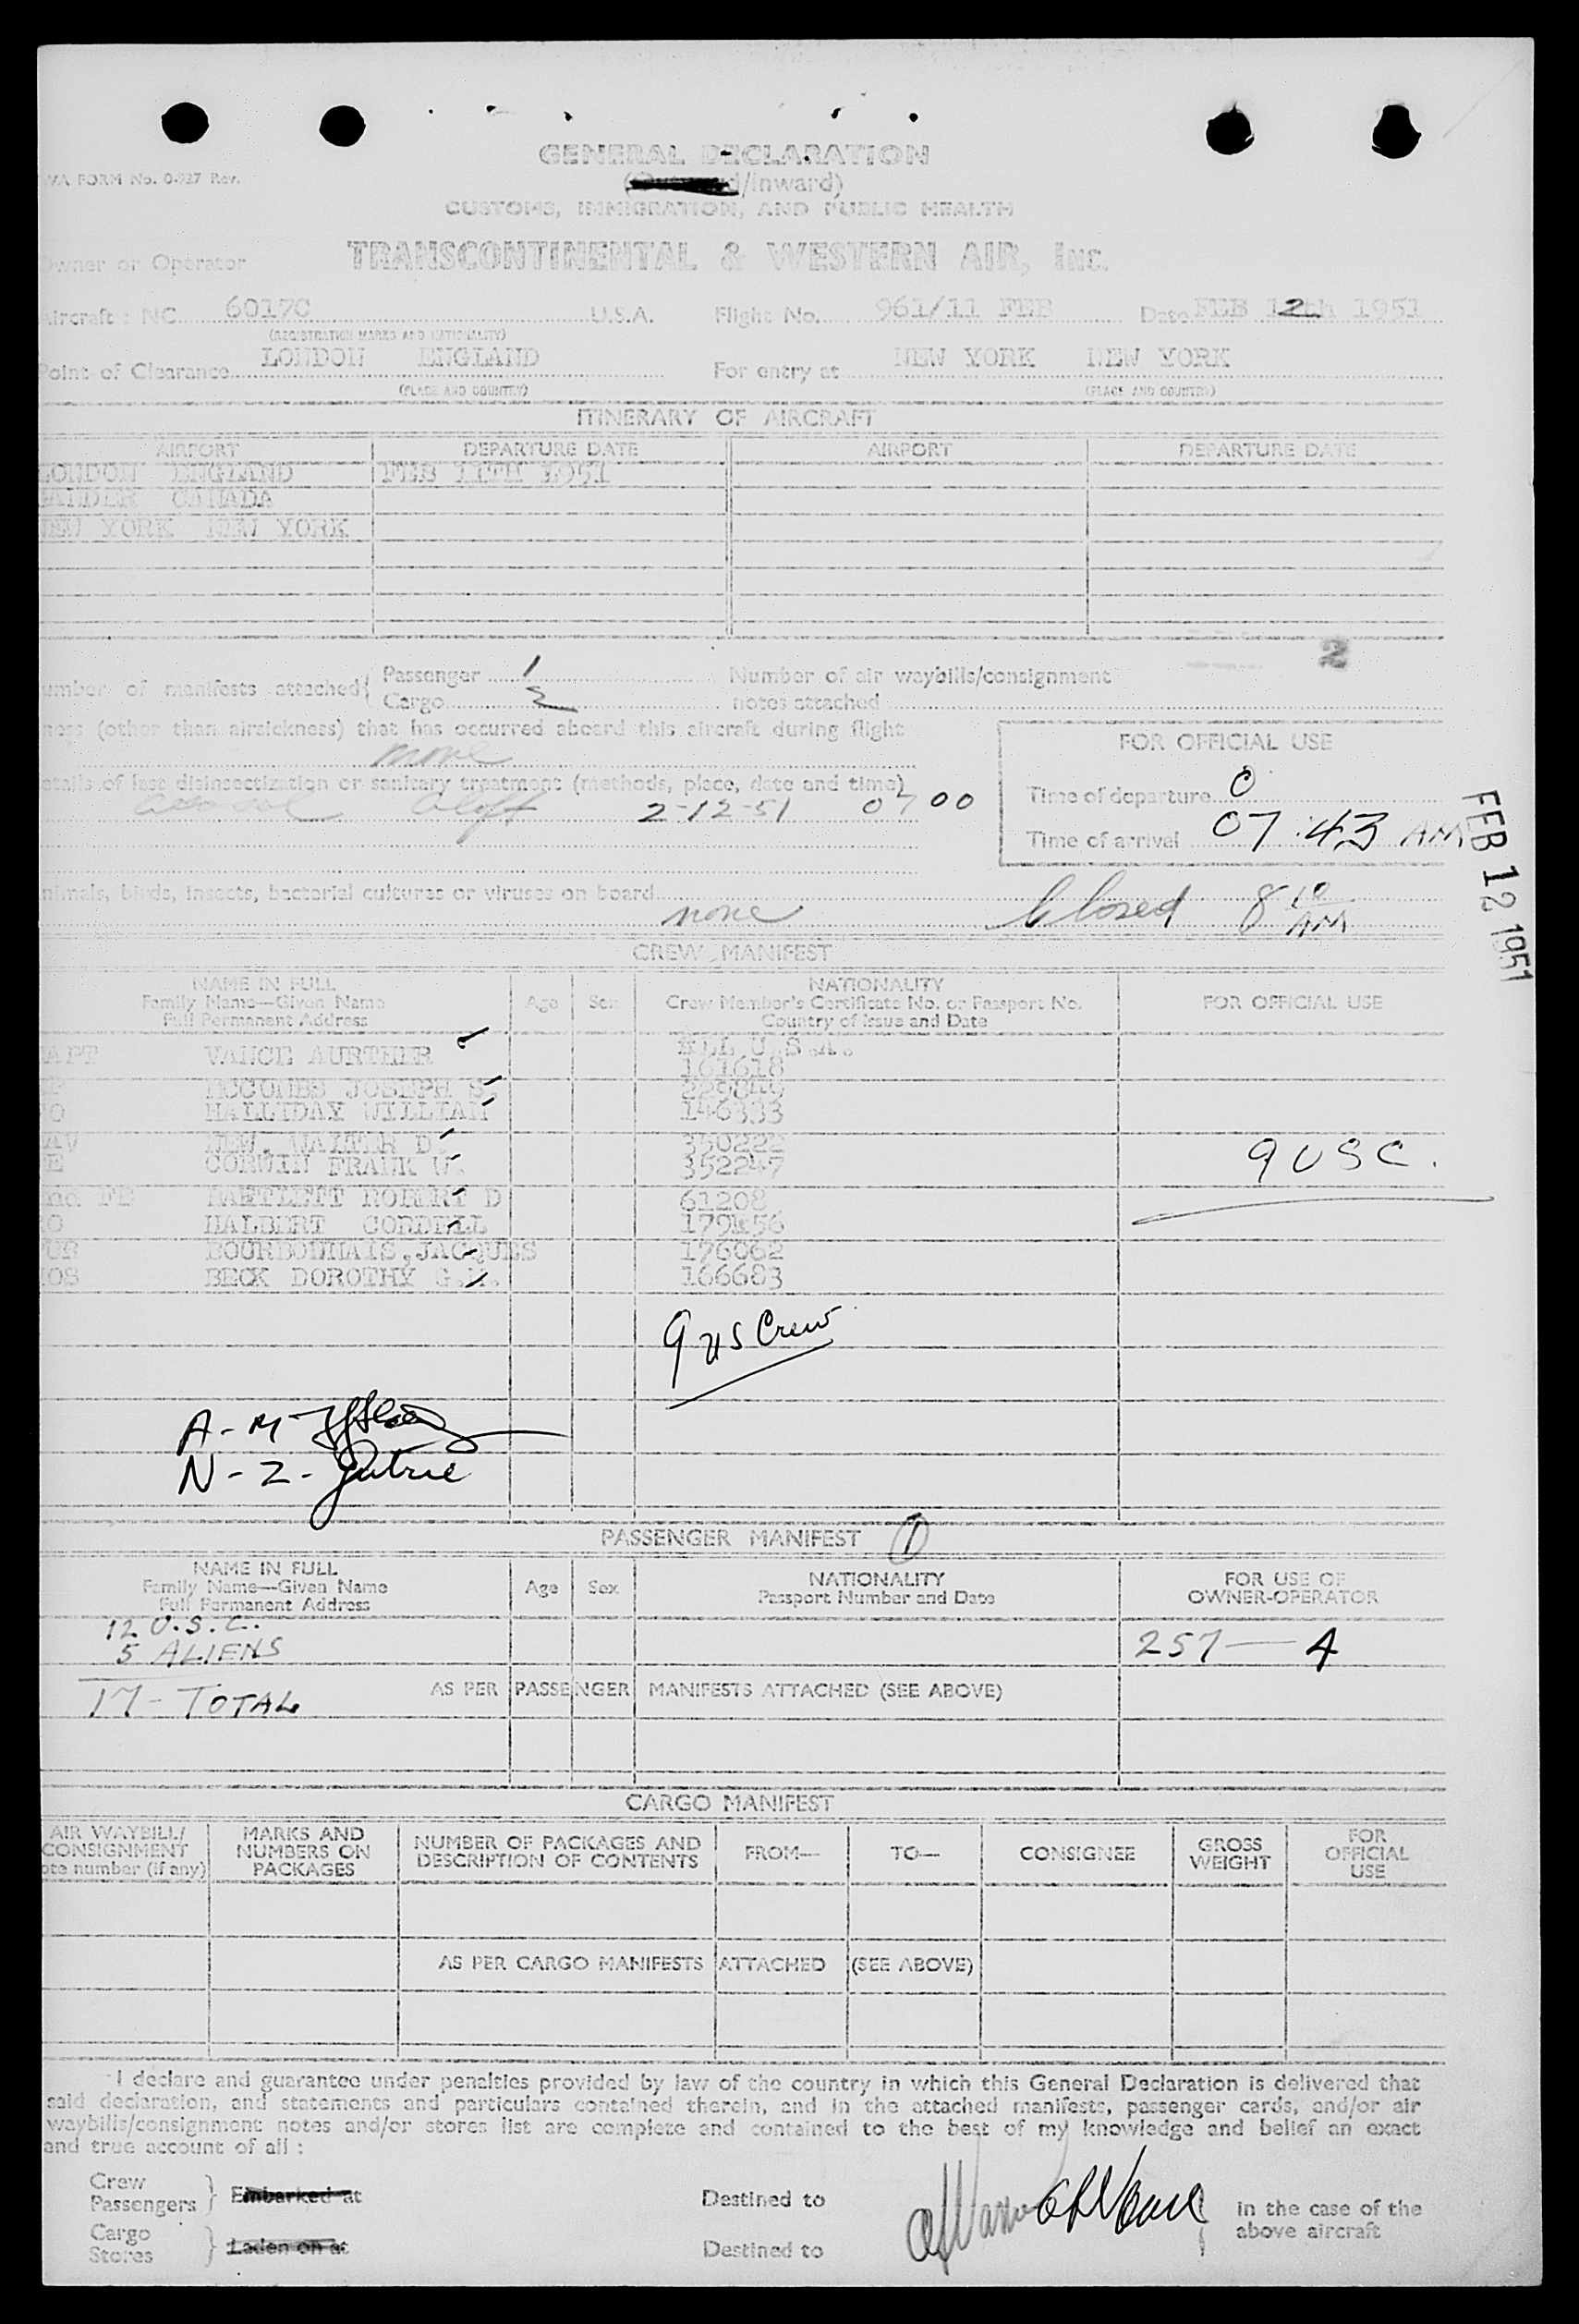 GENERAL DECLARATION
WA FORM No. 0-927 Rev.
/Inward)
CUSTOMS, IMMIGRATION, AND PUBLIC HEALTH
Owner or Operator TRANSCONTINENTAL & WESTERN AIR, Inc.
Aircraft : NC 6017C U.S.A. Flight No. 961/11 FEB Date FEB 12th 1951
(REGISTRATION MARKS AND NATIONALITY)
Point of Clearance LONDON ENGLAND For entry at NEW YORK NEW YORK
(PLACE AND COUNTRY) (PLACE AND COUNTRY)
ITINERARY OF AIRCRAFT
AIRPORT DEPARTURE DATE AIRPORT DEPARTURE DATE
LONDON ENGLAND FEB 11TH 1951
GANDER CANADA
NEW YORK NEW YORK
2
umber of manifests attached { Passenger 1 Number of air waybills/consignment
Cargo 2 notes attached
ness (other than airsickness) that has occurred aboard this aircraft during flight
none
FOR OFFICIAL USE
etails of last disinsectization or sanitary treatment (methods, place, date and time)
aloft 2-12-51 0700
Time of departure 0
Time of arrival 07:43 AM
FEB 12 1951
nimals, birds, insects, bacterial cultures or viruses on board
none Closed 8 10 AM
CREW MANIFEST
NAME IN FULL
Family Name—Given Name
Full Permanent Address
Age Sex
NATIONALITY
Crew Member's Certificate No. or Passport No.
Country of Issue and Date
FOR OFFICIAL USE
APT VANCE AURTHER ALL U.S.A.
161618
JOSEPH S.
O HALLIDAY WILLIAM 146333
AV NEW, WALTER D. 350222
E CORWIN FRANK W. 352247
9 USC.
FE ROBERT D 61208
O HALBERT CORDELL 179456
UR BOURBONNAIS, JACQUES 176062
OS BECK DOROTHY G.M. 166683
9 US Crew
A-M
N-Z-
PASSENGER MANIFEST 1
NAME IN FULL
Family Name—Given Name
Full Permanent Address
Age Sex
NATIONALITY
Passport Number and Date
FOR USE OF
OWNER-OPERATOR
12 U.S.C.
5 ALIENS 257 — A
17 - TOTAL AS PER PASSENGER MANIFESTS ATTACHED (SEE ABOVE)
CARGO MANIFEST
AIR WAYBILL/
CONSIGNMENT
ote number (if any)
MARKS AND
NUMBERS ON
PACKAGES
NUMBER OF PACKAGES AND
DESCRIPTION OF CONTENTS
FROM— TO— CONSIGNEE
GROSS
WEIGHT
FOR
OFFICIAL
USE
AS PER CARGO MANIFESTS ATTACHED (SEE ABOVE)
I declare and guarantee under penalties provided by law of the country in which this General Declaration is delivered that
said declaration, and statements and particulars contained therein, and in the attached manifests, passenger cards, and/or air
waybills/consignment notes and/or stores list are complete and contained to the best of my knowledge and belief an exact
and true account of all :
Crew
Passengers } Embarked at Destined to
Cargo
Stores } Laden on at Destined to
in the case of the
above aircraft